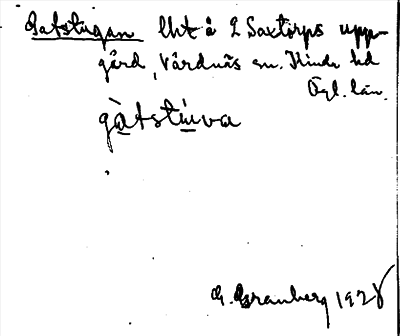 Gatstugan lht å 2 Saxtorps upp-
gård, Vårdnäs sn. Kinds hd
Ögl. län.
gàtstúva
G. Branberg 1928